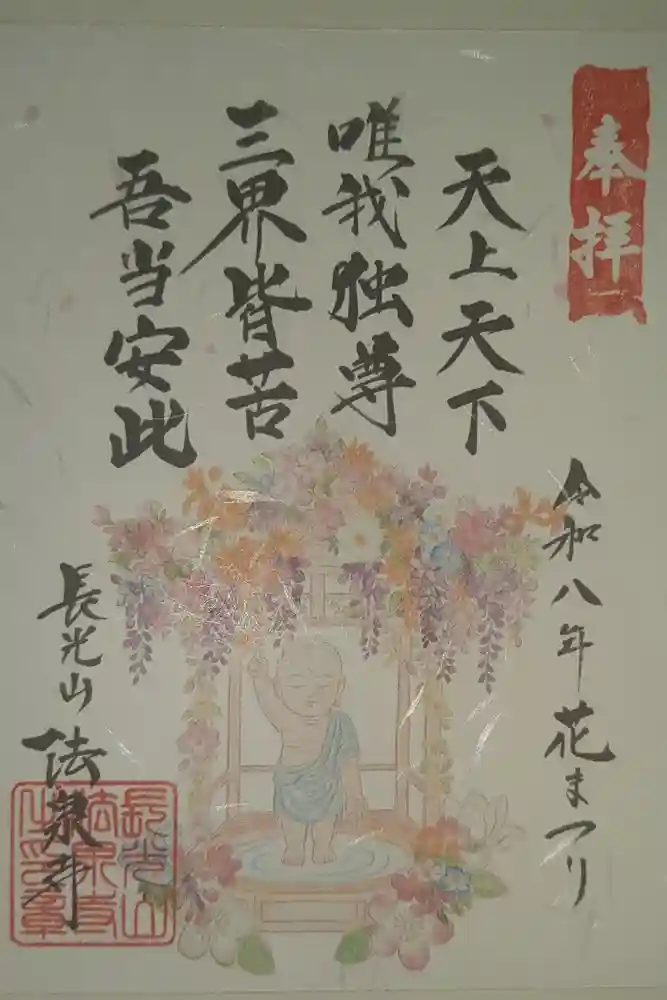 奉拝
天上天下
唯我独尊
三界皆苦
吾当安此
令和八年花まつり
長光山法泉寺
長光山
法泉寺